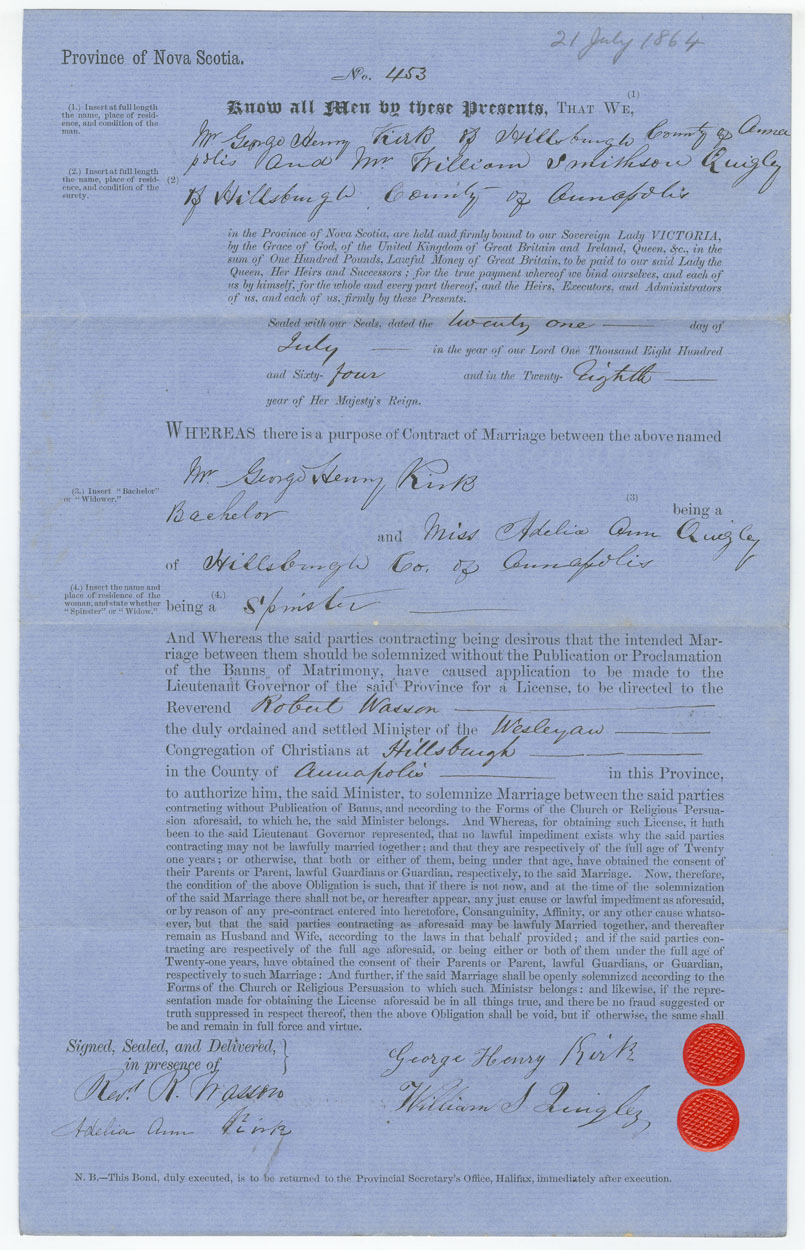 21 July 1864
Province of Nova Scotia.
No. 453
(1)
Know all Men by these Presents, THAT WE,
(1.) Insert at full length
the name, place of resid-
ence, and condition of the
man.
Mr George Henry Kirk of Hillsburgh County of Anna
polis and Mr William Smithson Quigley
(2.) Insert at full length
the name, place of resid-
ence, and condition of the
surety.
(2)
of Hillsburgh County of Annapolis
in the Province of Nova Scotia, are held and firmly bound to our Sovereign Lady VICTORIA,
by the Grace of God, of the United Kingdom of Great Britain and Ireland, Queen, &c., in the
sum of One Hundred Pounds, Lawful Money of Great Britain, to be paid to our said Lady the
Queen, Her Heirs and Successors; for the true payment whereof we bind ourselves, and each of
us by himself, for the whole and every part thereof, and the Heirs, Executors, and Administrators
of us, and each of us, firmly by these Presents.
Sealed with our Seals, dated the twenty one day of
July in the year of our Lord One Thousand Eight Hundred
and Sixty- four and in the Twenty- Eighth
year of Her Majesty's Reign.
WHEREAS there is a purpose of Contract of Marriage between the above named
Mr George Henry Kirk
(3.) Insert "Bachelor"
or "Widower."
(3)
being a
Bachelor and Miss Adelia Ann Quigley
of Hillsburgh Co. of Annapolis
(4.) Insert the name and
place of residence of the
woman, and state whether
"Spinster" or "Widow."
(4.)
being a Spinster
And Whereas the said parties contracting being desirous that the intended Mar-
riage between them should be solemnized without the Publication or Proclamation
of the Banns of Matrimony, have caused application to be made to the
Lieutenant Governor of the said Province for a License, to be directed to the
Reverend Robert Wasson
the duly ordained and settled Minister of the Wesleyan
Congregation of Christians at Hillsburgh
in the County of Annapolis in this Province,
to authorize him, the said Minister, to solemnize Marriage between the said parties
contracting without Publication of Banns, and according to the Forms of the Church or Religious Persua-
sion aforesaid, to which he, the said Minister belongs. And Whereas, for obtaining such License, it hath
been to the said Lieutenant Governor represented, that no lawful impediment exists why the said parties
contracting may not be lawfully married together; and that they are respectively of the full age of Twenty
one years; or otherwise, that both or either of them, being under that age, have obtained the consent of
their Parents or Parent, lawful Guardians or Guardian, respectively, to the said Marriage. Now, therefore,
the condition of the above Obligation is such, that if there is not now, and at the time of the solemnization
of the said Marriage there shall not be, or hereafter appear, any just cause or lawful impediment as aforesaid,
or by reason of any pre-contract entered into heretofore, Consanguinity, Affinity, or any other cause whatso-
ever, but that the said parties contracting as aforesaid may be lawfuly Married together, and thereafter
remain as Husband and Wife, according to the laws in that behalf provided; and if the said parties con-
tracting are respectively of the full age aforesaid, or being either or both of them under the full age of
Twenty-one years, have obtained the consent of their Parents or Parent, lawful Guardians, or Guardian,
respectively to such Marriage: And further, if the said Marriage shall be openly solemnized according to the
Forms of the Church or Religious Persuasion to which such Ministsr belongs: and likewise, if the repre-
sentation made for obtaining the License aforesaid be in all things true, and there be no fraud suggested or
truth suppressed in respect thereof, then the above Obligation shall be void, but if otherwise, the same shall
be and remain in full force and virtue.
Signed, Sealed, and Delivered,
in presence of
George Henry Kirk
Revd. R. Wasson
William S Quigley
Adelia Ann Kirk
N. B.—This Bond, duly executed, is to be returned to the Provincial Secretary's Office, Halifax, immediately after execution.